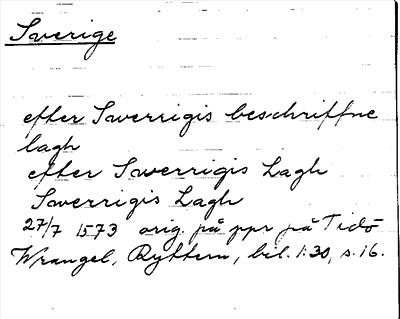 Sverige
efter Swerrigis beschriffne
lagh
efter Swerrigis Lagh
Swerrigis Lagh
27/7 1573 orig. på ppr på Tidö
Wrangel, Ryttern, bil. 1:30, s. 16.